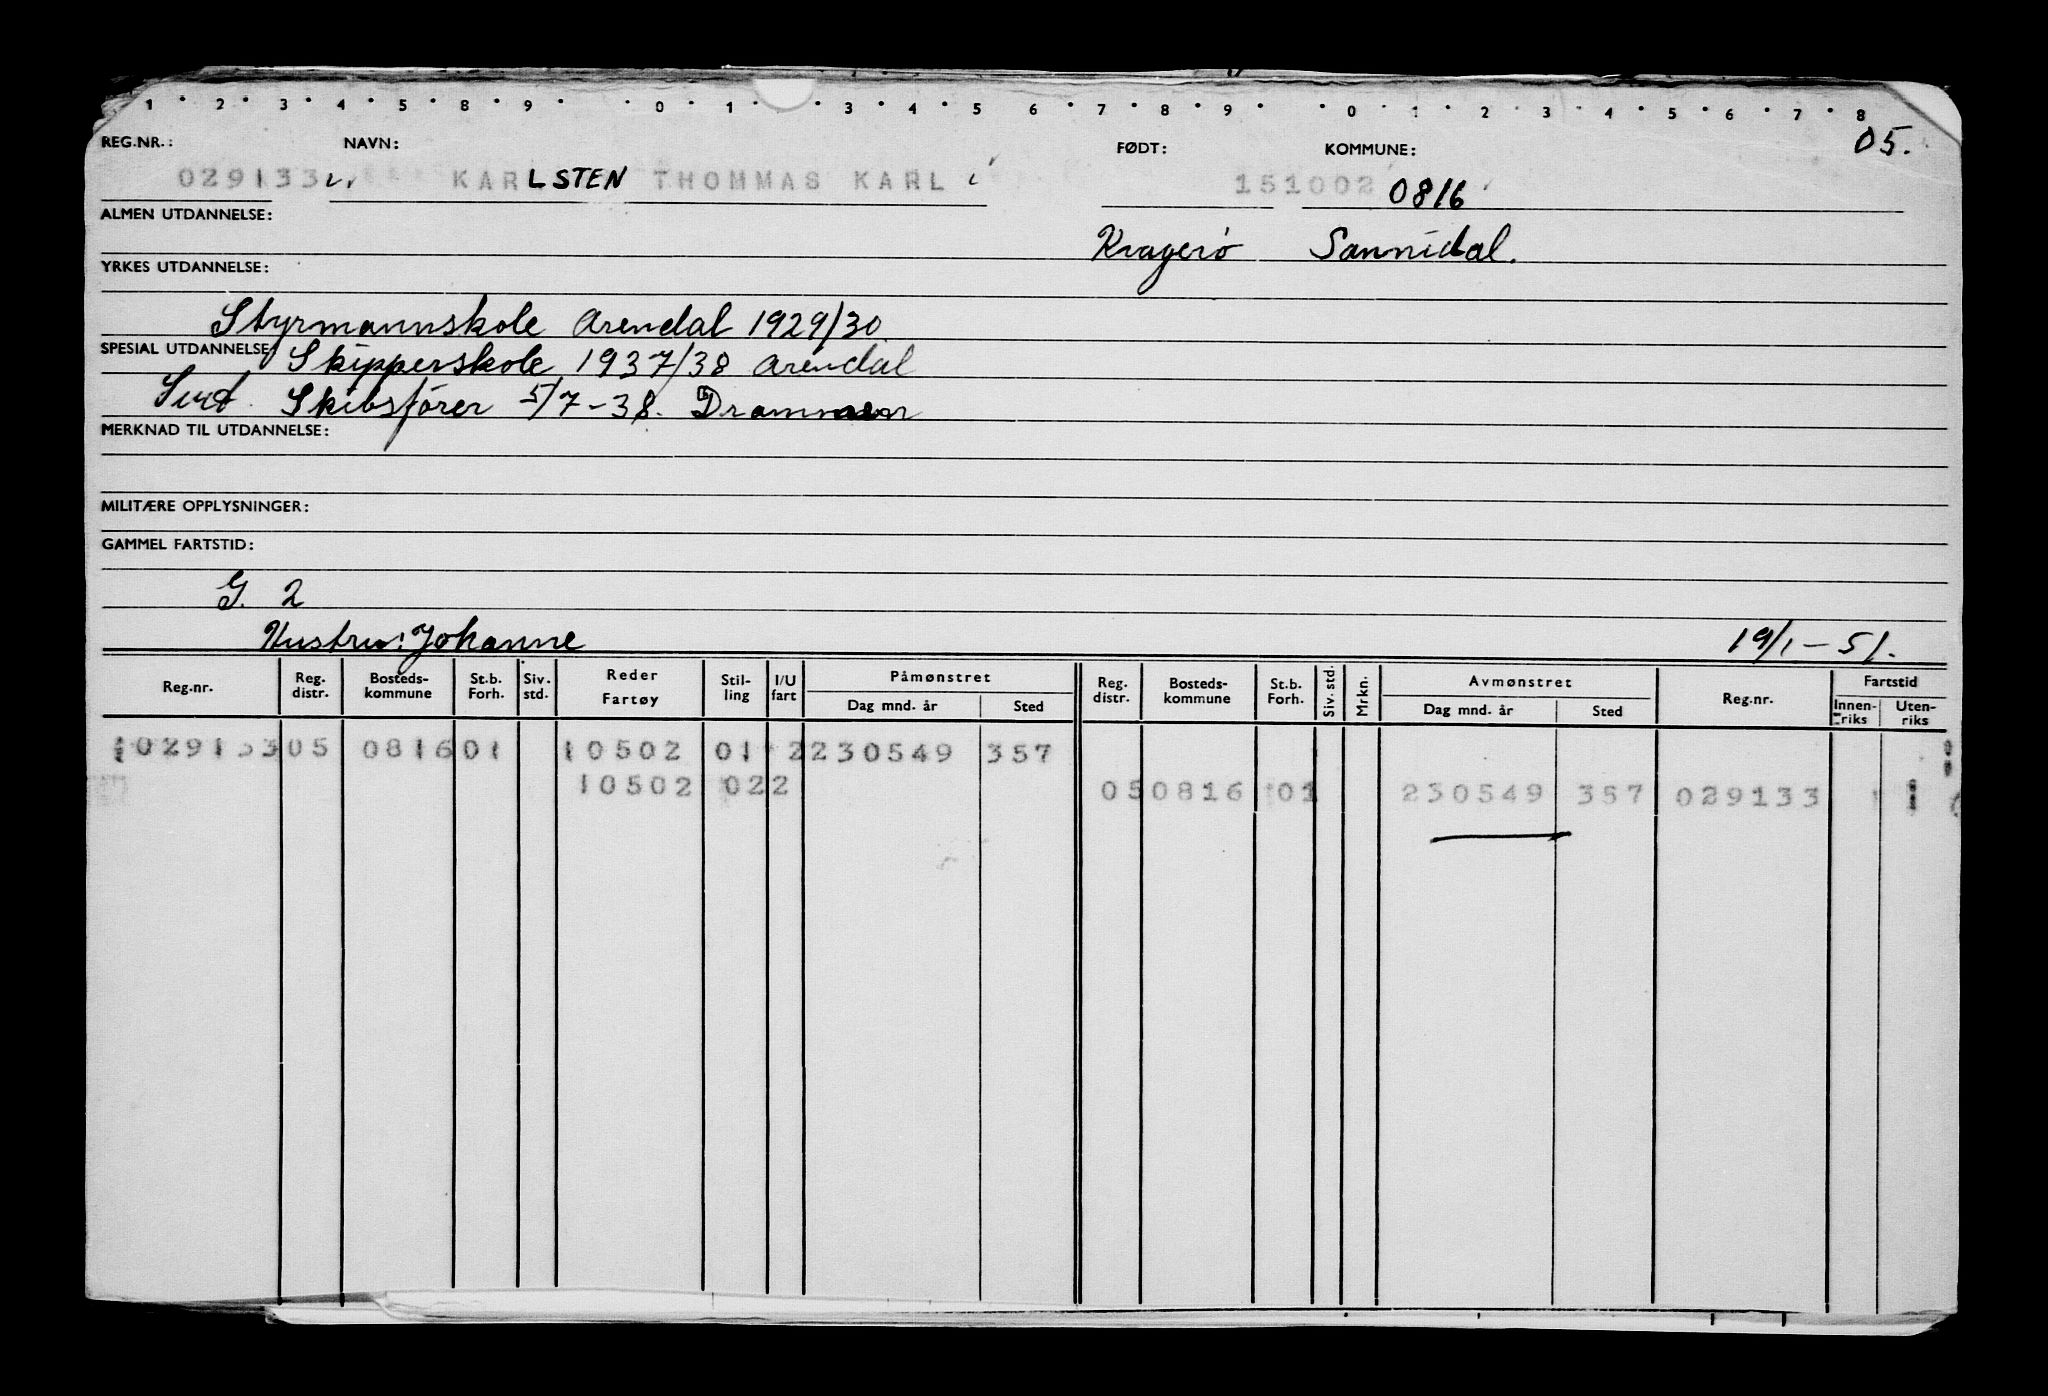 1 2 3 4 5 8 9 0 1 3 4 5 6 7 8 9 0 1 2 3 4 5 6 7 8
05.
REG.NR.: NAVN: FØDT: KOMMUNE:
029133 KARLSTEN THOMMAS KARL 151002 0816
ALMEN UTDANNELSE:
Kragerö Sannidal.
YRKES UTDANNELSE:
Styrmannskole Arendal 1929/30
SPESIAL UTDANNELSE: Skipperskole 1937/38 Arendal
Skibsförer 5/7-38. Drammen
MERKNAD TIL UTDANNELSE:
MILITÆRE OPPLYSNINGER:
GAMMEL FARTSTID:
G. 2
Hustru: Johanne 19/1-51.
Reg.nr. Reg. distr. Bosteds-kommune St.b. Forh. Siv. std. Reder Fartøy Stil-ling I/U fart Påmønstret Dag mnd. år Sted Reg. distr. Bosteds-kommune St.b. Forh. Siv. std. Mrkn. Avmønstret Dag mnd. år Sted Reg.nr. Fartstid Innen-riks Uten-riks
1029133 05 0816 01 10502 01 2 230549 357
10502 02 2 05 0816 01 230549 357 029133 1